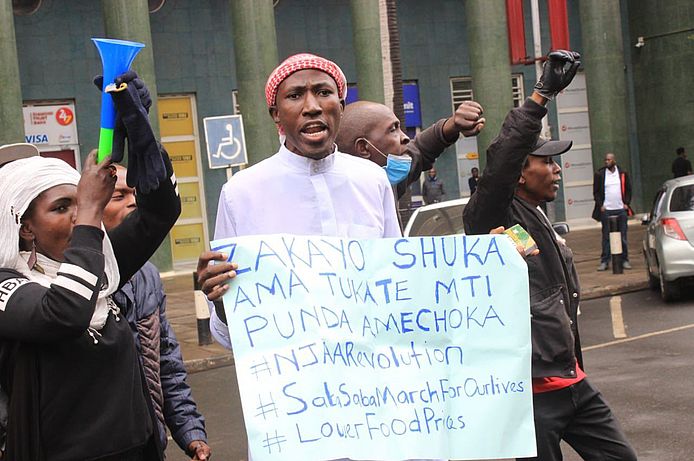 ZAKAYO SHUKA
AMA TUKATE MTI
PUNDA AMECHOKA
#NJAARevolution
#SabaSabaMarchForOurlives
#LowerFoodPrices
VISA